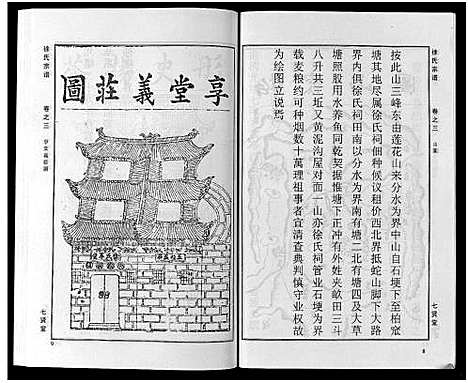 徐氏宗谱
卷之三
山图
七贤堂
8
按此山三峰东由莲花山来分水为界中山自石埂下至柏窊
塘其地尽属徐氏祠佃种候议租价西北界抵蛇山脚下大路
界内俱徐氏祠田南以分水为界南有塘二北有塘四及大草
塘照股用水养鱼同乾契据惟塘下正冲有外姓夹畝田三斗
八升共三坵又黄泥沟屋对面一山亦徐氏祠管业石埂为界
载麦粮约可种烟数十萬理祖事者宜清查典判慎守业权故
为绘图立说焉
享堂義莊圖
徐氏宗谱
卷之三
享堂義莊圖
七贤堂
9